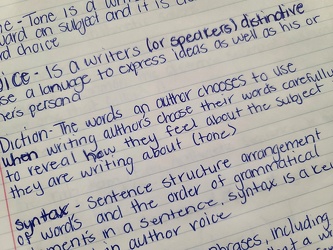 e - Tone is a wri
ward an subject and it is c
rd choice
oice - Is a writers (or speakers) distinctive
use a languge to express ideas as well as his or
hers persona
Diction - The words an author chooses to use
when writing authors choose their words carefully
to reveal how they feel about the subject
they are writing about (tone)
syntax - Sentence structure arrangement
of words and the order of grammatical
ments in a sentence, syntax is a ke
in author voice
phases, including